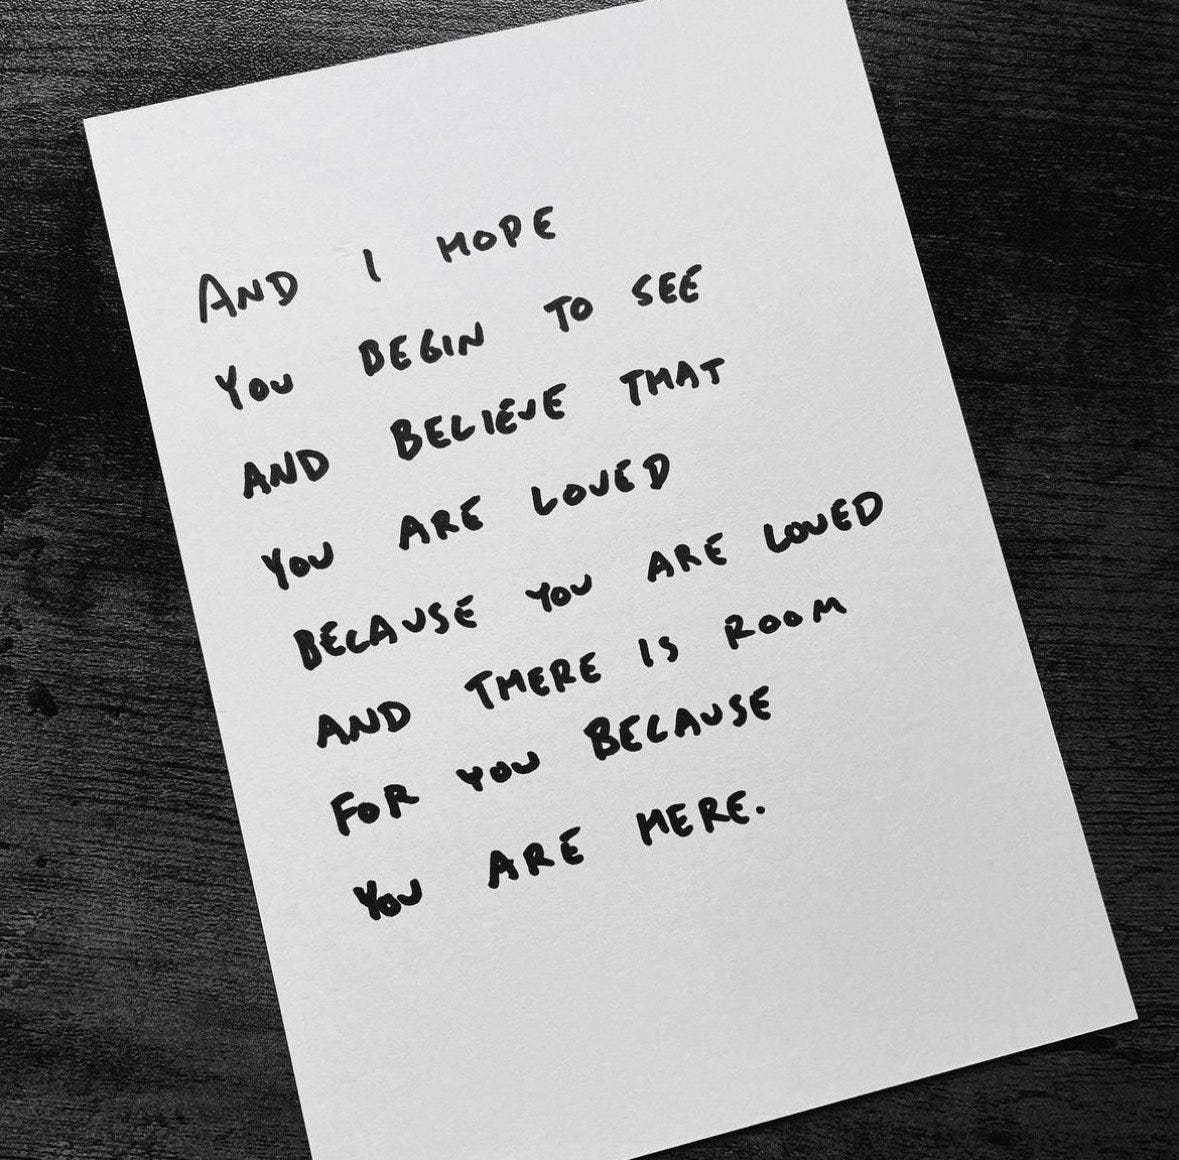 AND I HOPE
YOU BEGIN TO SEE
AND BELIEVE THAT
YOU ARE LOVED
BECAUSE YOU ARE LOVED
AND THERE IS ROOM
FOR YOU BECAUSE
YOU ARE HERE.